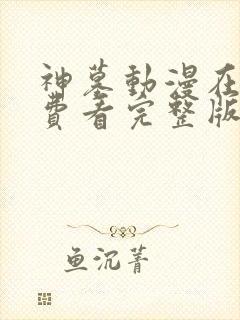 神墓動漫在
費看完整版
鱼沉菁